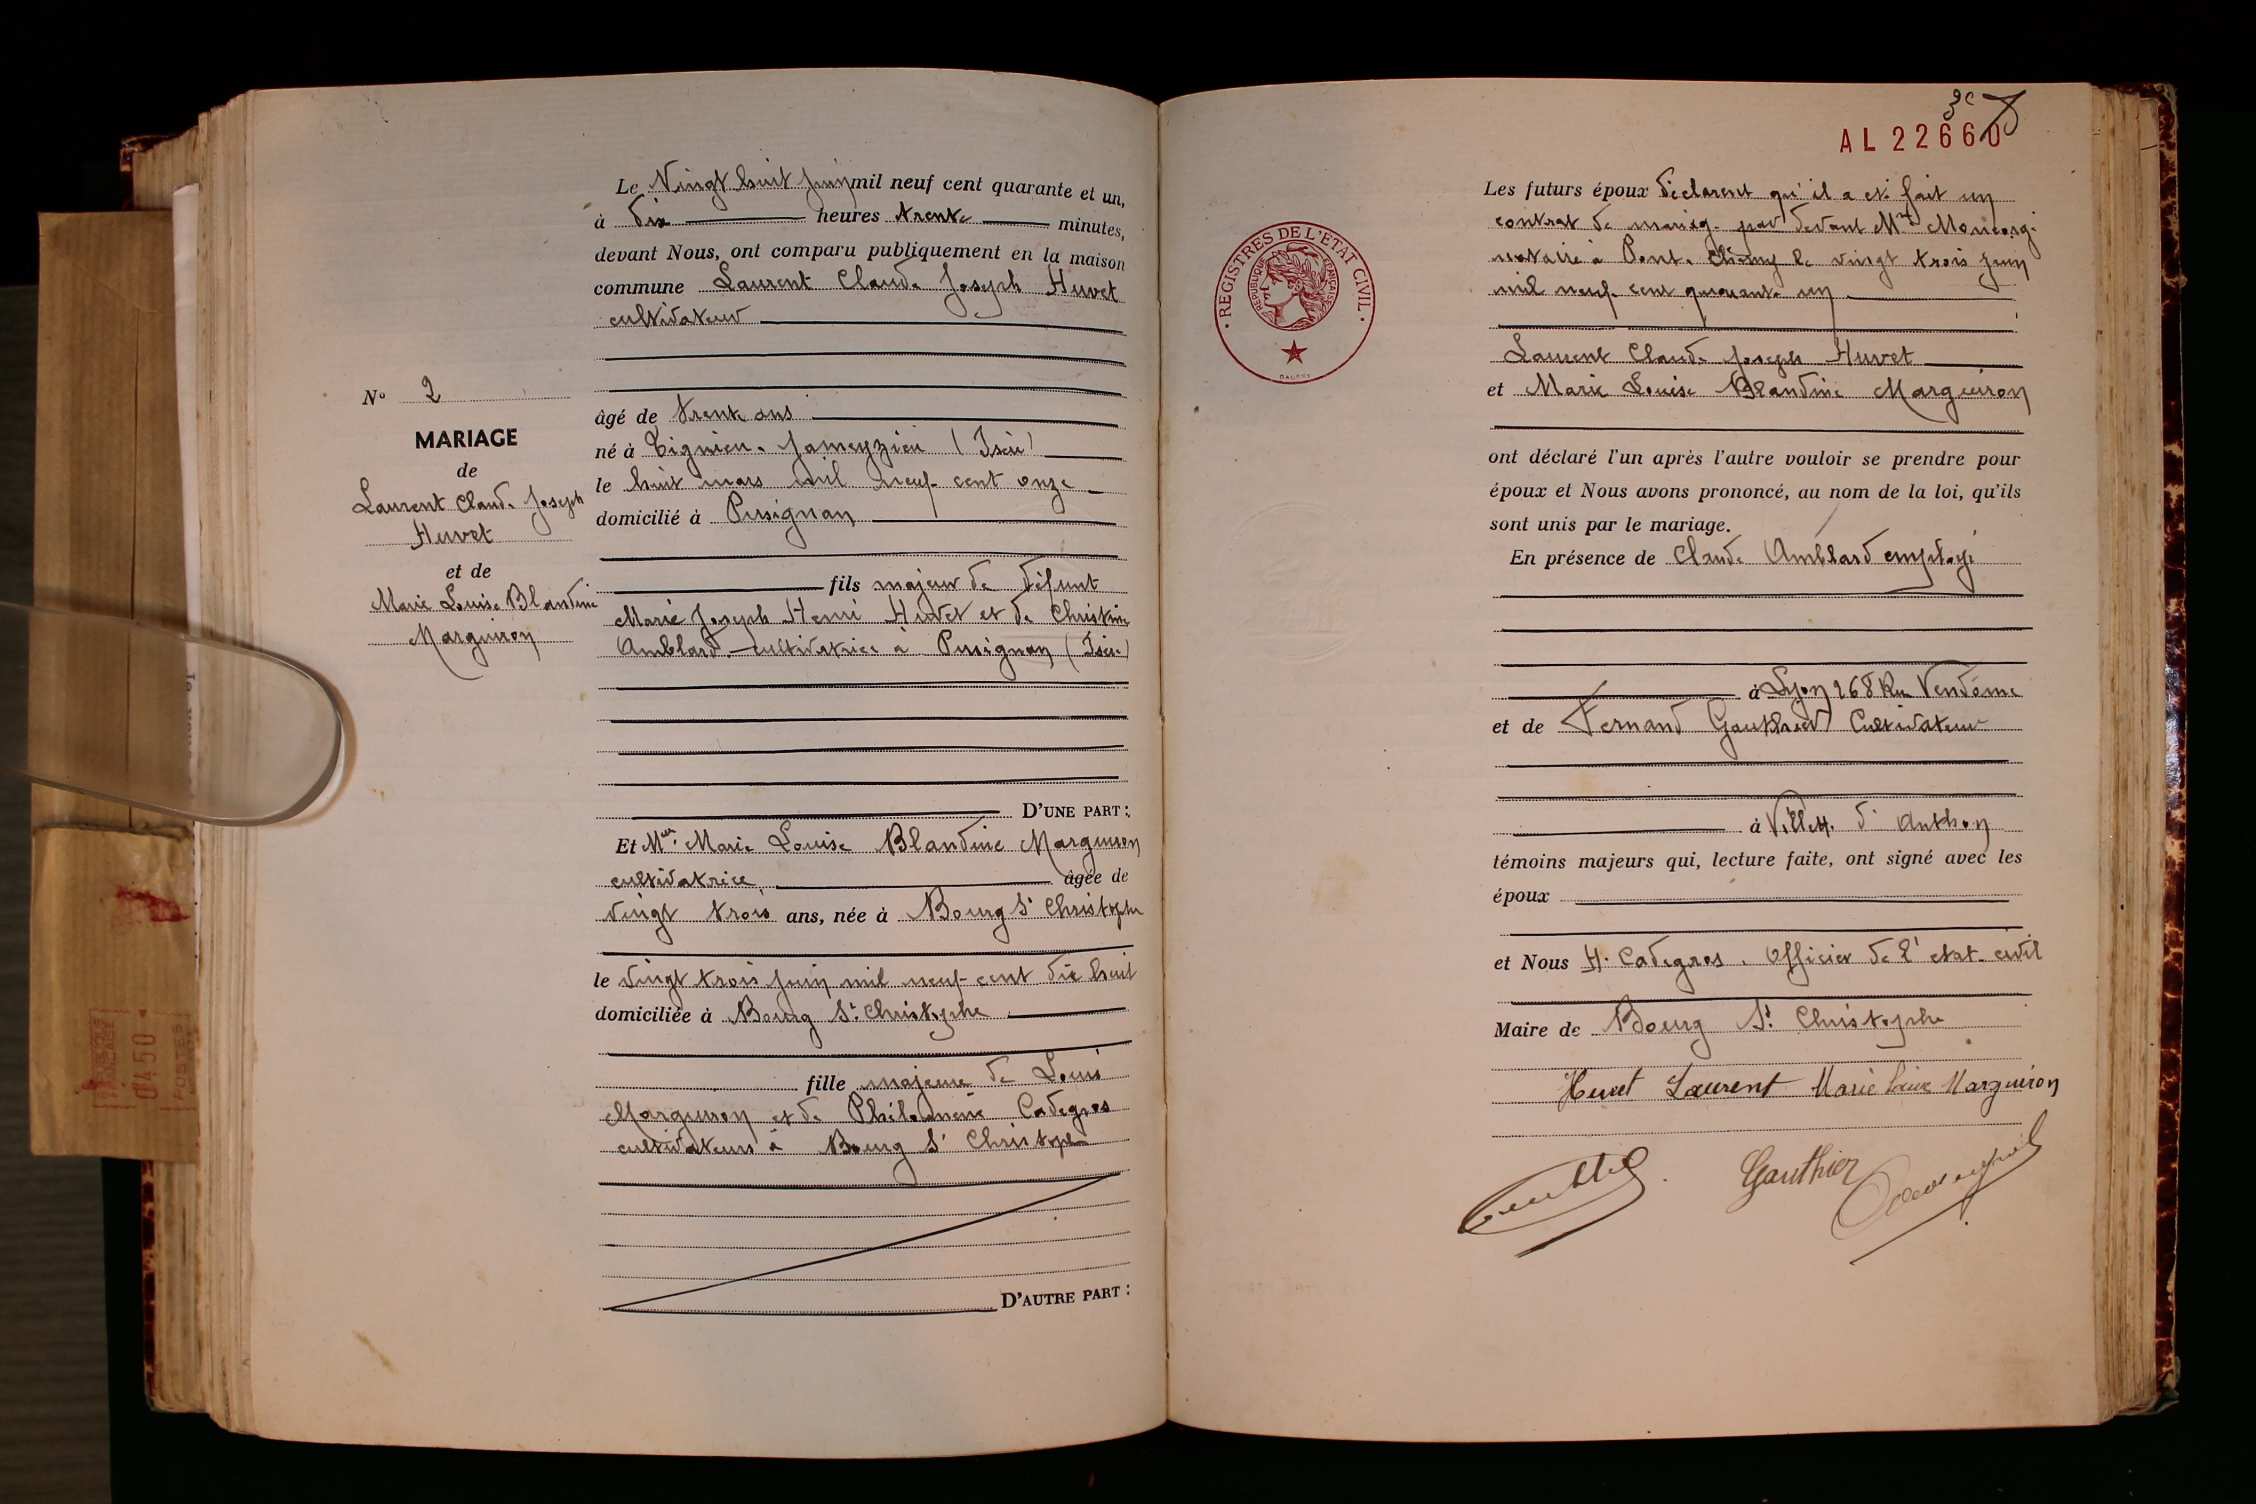 Le Vingt huit juin mil neuf cent quarante et un,
à dix heures trente minutes,
devant Nous, ont comparu publiquement en la maison
commune Laurent Claude Joseph Huvet
cultivateur
âgé de trente ans
né à Tignieu-Jameyzieu (Isère)
le huit mars mil neuf cent onze
domicilié à Pusignan
fils majeur de défunt
Marie Joseph Henri Huvet et de Christine
Amblard cultivatrice à Pusignan (Isère)
D'UNE PART :
Et Melle Marie Louise Blandine Marguiron
cultivatrice âgée de
vingt trois ans, née à Bourg St Christophe
le vingt trois juin mil neuf cent dix huit
domiciliée à Bourg St Christophe
fille majeure de Louis
Marguiron et de Philomène Cadegros
cultivateurs à Bourg St Christophe
D'AUTRE PART :
N° 2
MARIAGE
de
Laurent Claude Joseph
Huvet
et de
Marie Louise Blandine
Marguiron
0450
POSTES
AL 22660
REGISTRES DE L'ETAT CIVIL
REPUBLIQUE FRANÇAISE
Les futurs époux déclarent qu'il a été fait un
contrat de mariage par devant Me Moncorgé
notaire à Pont-Chéruy le vingt trois juin
mil neuf cent quarante un
Laurent Claude Joseph Huvet
et Marie Louise Blandine Marguiron
ont déclaré l'un après l'autre vouloir se prendre pour
époux et Nous avons prononcé, au nom de la loi, qu'ils
sont unis par le mariage.
En présence de Claude Amblard employé
à Lyon 268 Rue Vendôme
et de Fernand Gauthier Cultivateur
à Villette d'Anthon
témoins majeurs qui, lecture faite, ont signé avec les
époux
et Nous H. Cadegros. Officier de l'état-civil
Maire de Bourg St Christophe
Huvet Laurent Marie Louise Marguiron
Gauthier